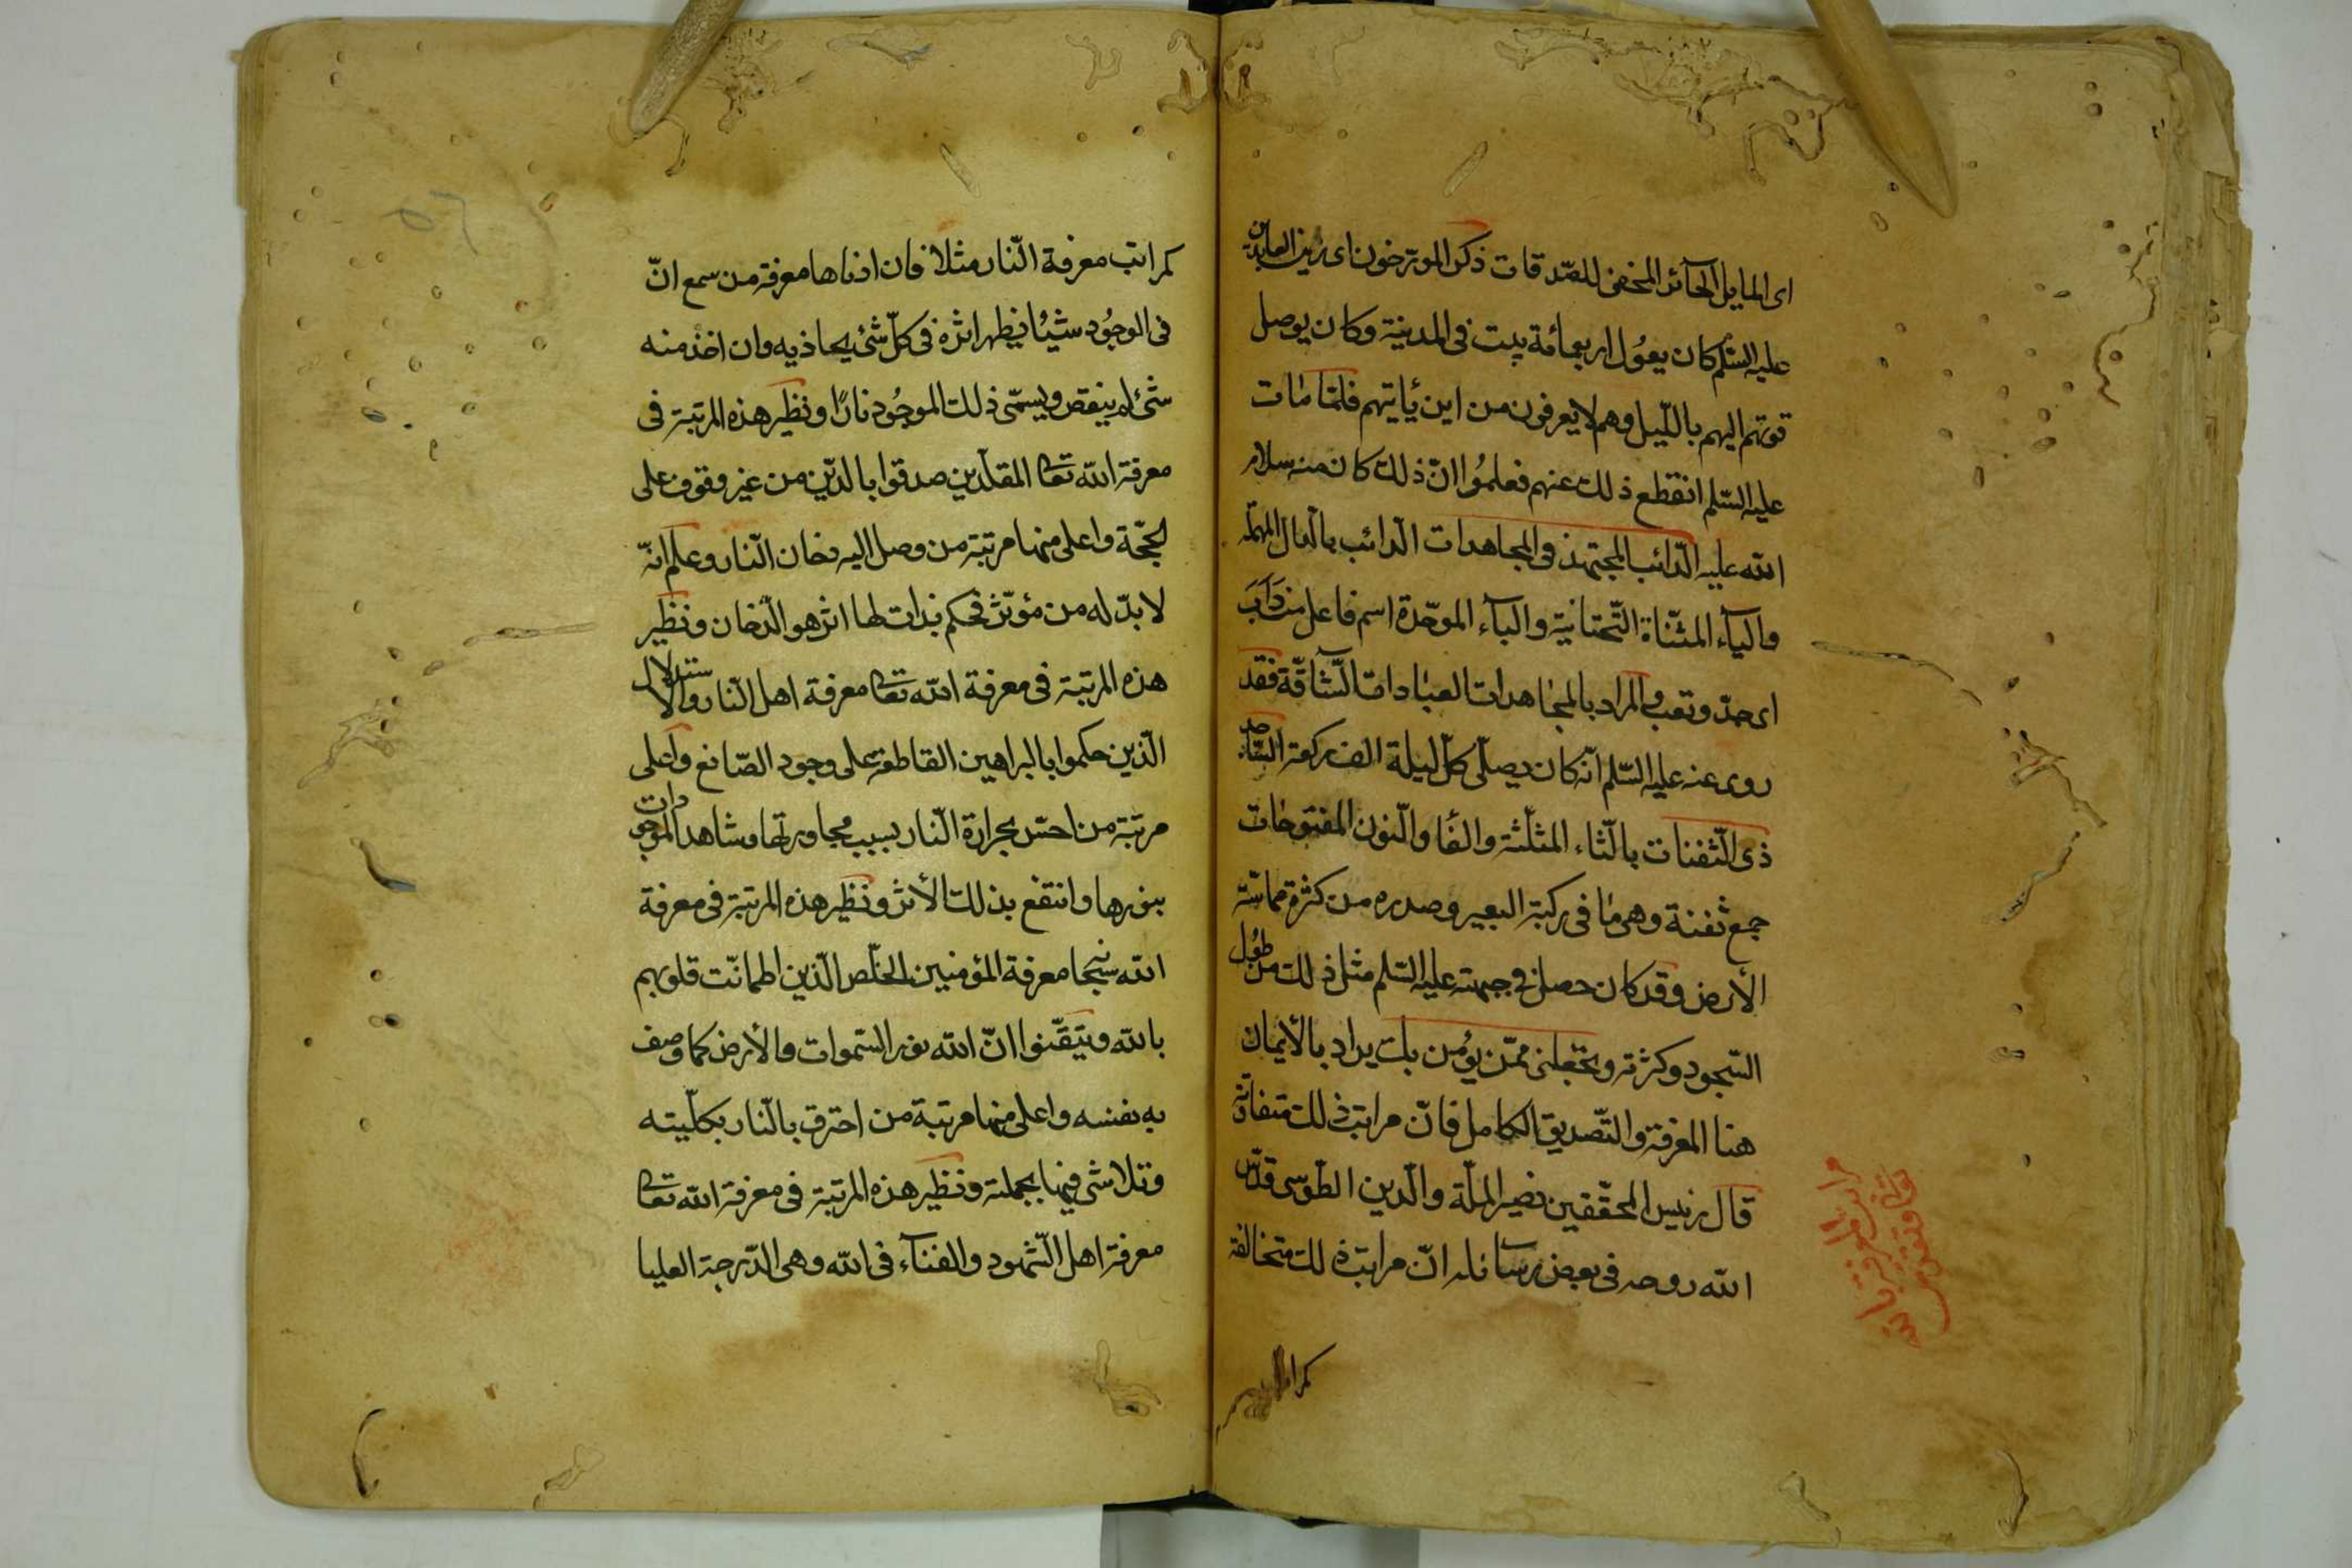 اى المايل الجائر المخفى للصّدقات ذكر المورّخون اى زين العابدين
عليه السّلم كان يعوُل اربعمأئة بيت فى المدينة وكان يوصل
قوتهم اليهم باللّيل وهم لا يعرفون من اين يأتيهم فلمّا مات
عليه السّلم انقطع ذلك عنهم فعلموُا انّ ذلك كان منه سلام
الله عليه الدّائب المجتهد فى المجاهدات الدائب بالدال المهملة
والياء المثنّاة التّحتانية والباء الموحّدة اسم فاعل من دَأَبَ
اى جدّ وتعب والمراد بالمجاهدات العبادات الشّاقّة فقد
روى عنه عليه السّلم انّه كان يصلّى كلّ ليلة الف ركعة السّاجد
ذى الثّفنات بالثّاء المثلّثة والفا والنّون المفتوحات
جمع ثفنة وهى ما فى ركبة البعير وصدره من كثرة مماسّة
الأرض وقد كان حصل فى جبهته عليه السّلم مثل ذلك من طوُل
السّجود وكثرته وتجعلنى ممّن يؤمن بك يراد بالأيمان
هنا المعرفة والتّصديق الكامل فانّ مراتب ذلك متفاوتة
قال رئيس المحقّقين نصير الملّة والدّين الطّوسى قدّس
الله روحه فى بعض رسائله انّ مراتب ذلك متخالفة
كمراتب
كمراتب معرفة النّار مثلا فان ادناها معرفة من سمع انّ
فى الوجوُد شيئا يظهر اثره فى كلّ شئ يحاذيه وان اخذ منه
شئ لم ينقص ويسمّى ذلك الموجوُد نارًا ونظير هذه المرتبة فى
معرفة الله تعا المقلّدين صدقوا بالدّين من غير وقوف على
الحجّة واعلى منها مرتبة من وصل اليه دخان النّار وعلم انّه
لا بدّ له من مؤثّر فحكم بذات لها اثر هو الدّخان ونظير
هذه المرتبة فى معرفة الله تعا معرفة اهل النّار والاستدلال
الّذين حكموا بالبراهين القاطعة على وجود الصّانع واعلى
مرتبة من احسّ بحرارة النّار بسبب مجاورتها وشاهد الموجودات
بنورها وانتفع بذلك الأثر ونظير هذه المرتبة فى معرفة
الله سبحا معرفة المؤمنين الخلّص الّذين اطمانّت قلوبهم
بالله وتيقّنوا انّ الله نور السّموات والأرض كما وصف
به نفسه واعلى منها مرتبة من احترق بالنّار بكلّيته
وتلاشى فيها بجملته ونظير هذه المرتبة فى معرفة الله تعا
معرفة اهل الشّهود والفناء فى الله وهى الدّرجة العليا